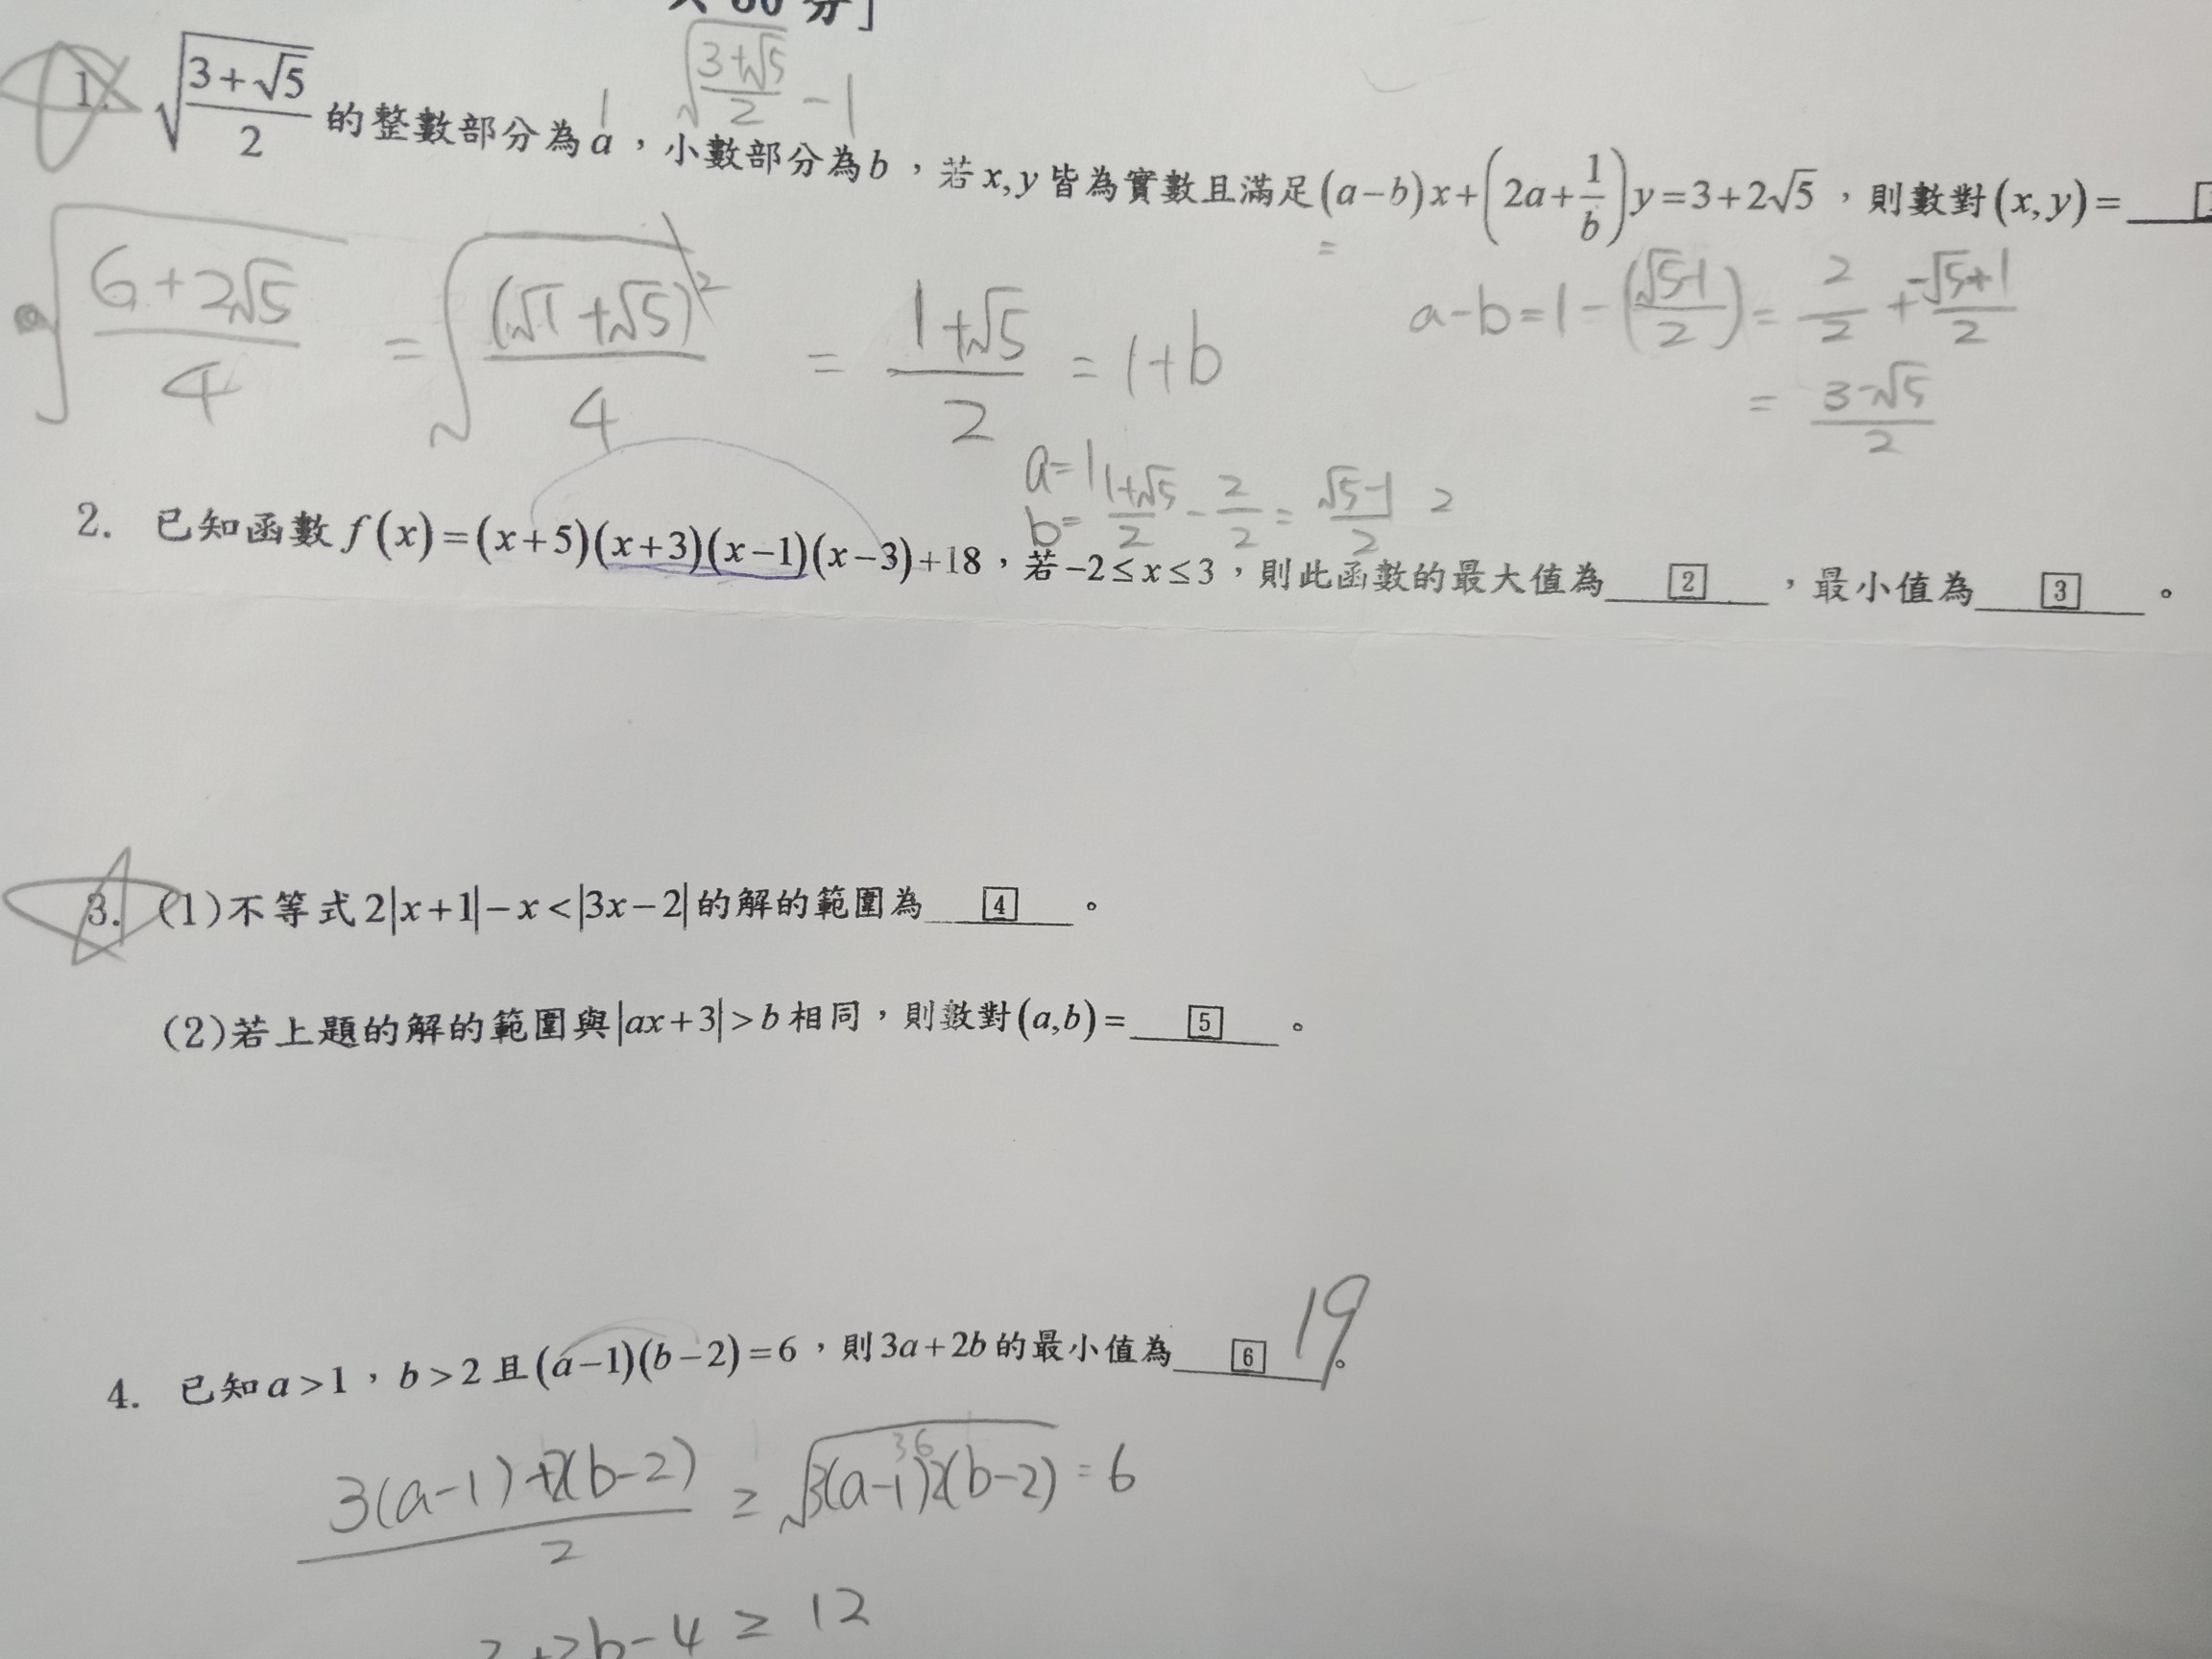 60 分」
√((3+√5)/2) − 1
1
1. √((3+√5)/2) 的整數部分為 a，小數部分為 b，若 x,y 皆為實數且滿足 (a−b)x+(2a+1/b)y=3+2√5，則數對 (x,y)=
√((6+2√5)/4) = √((√1+√5)²/4) = (1+√5)/2 = 1+b
a−b=1−((√5−1)/2)= 2/2 + (−√5+1)/2
= (3−√5)/2
a=1
b= (1+√5)/2 − 2/2 = (√5−1)/2 2
2. 已知函數 f(x)=(x+5)(x+3)(x−1)(x−3)+18，若−2≤x≤3，則此函數的最大值為 2 ，最小值為 3 。
3. (1)不等式 2|x+1|−x<|3x−2| 的解的範圍為 4 。
(2)若上題的解的範圍與|ax+3|>b 相同，則數對(a,b)= 5 。
4. 已知 a>1，b>2 且 (a−1)(b−2)=6，則 3a+2b 的最小值為 6 。 19
(3(a−1)+2(b−2))/2 ≥ √(3(a−1)2(b−2)) = 6
36
+2b−4 ≥ 12